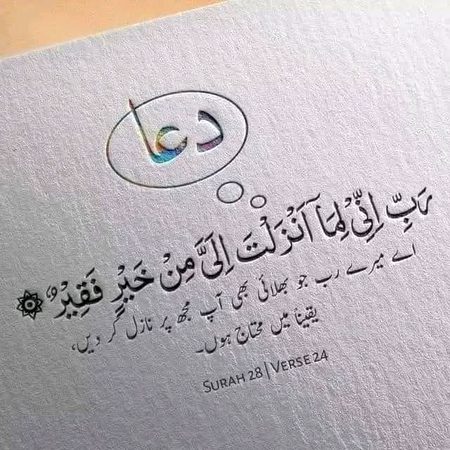 دعا
رَبِّ اِنِّیْ لِمَاۤ اَنْزَلْتَ اِلَیَّ مِنْ خَیْرٍ فَقِیْرٌ
اے میرے رب جو بھلائی بھی آپ مجھ پر نازل کر دیں،
یقیناً میں محتاج ہوں۔
SURAH 28 | VERSE 24